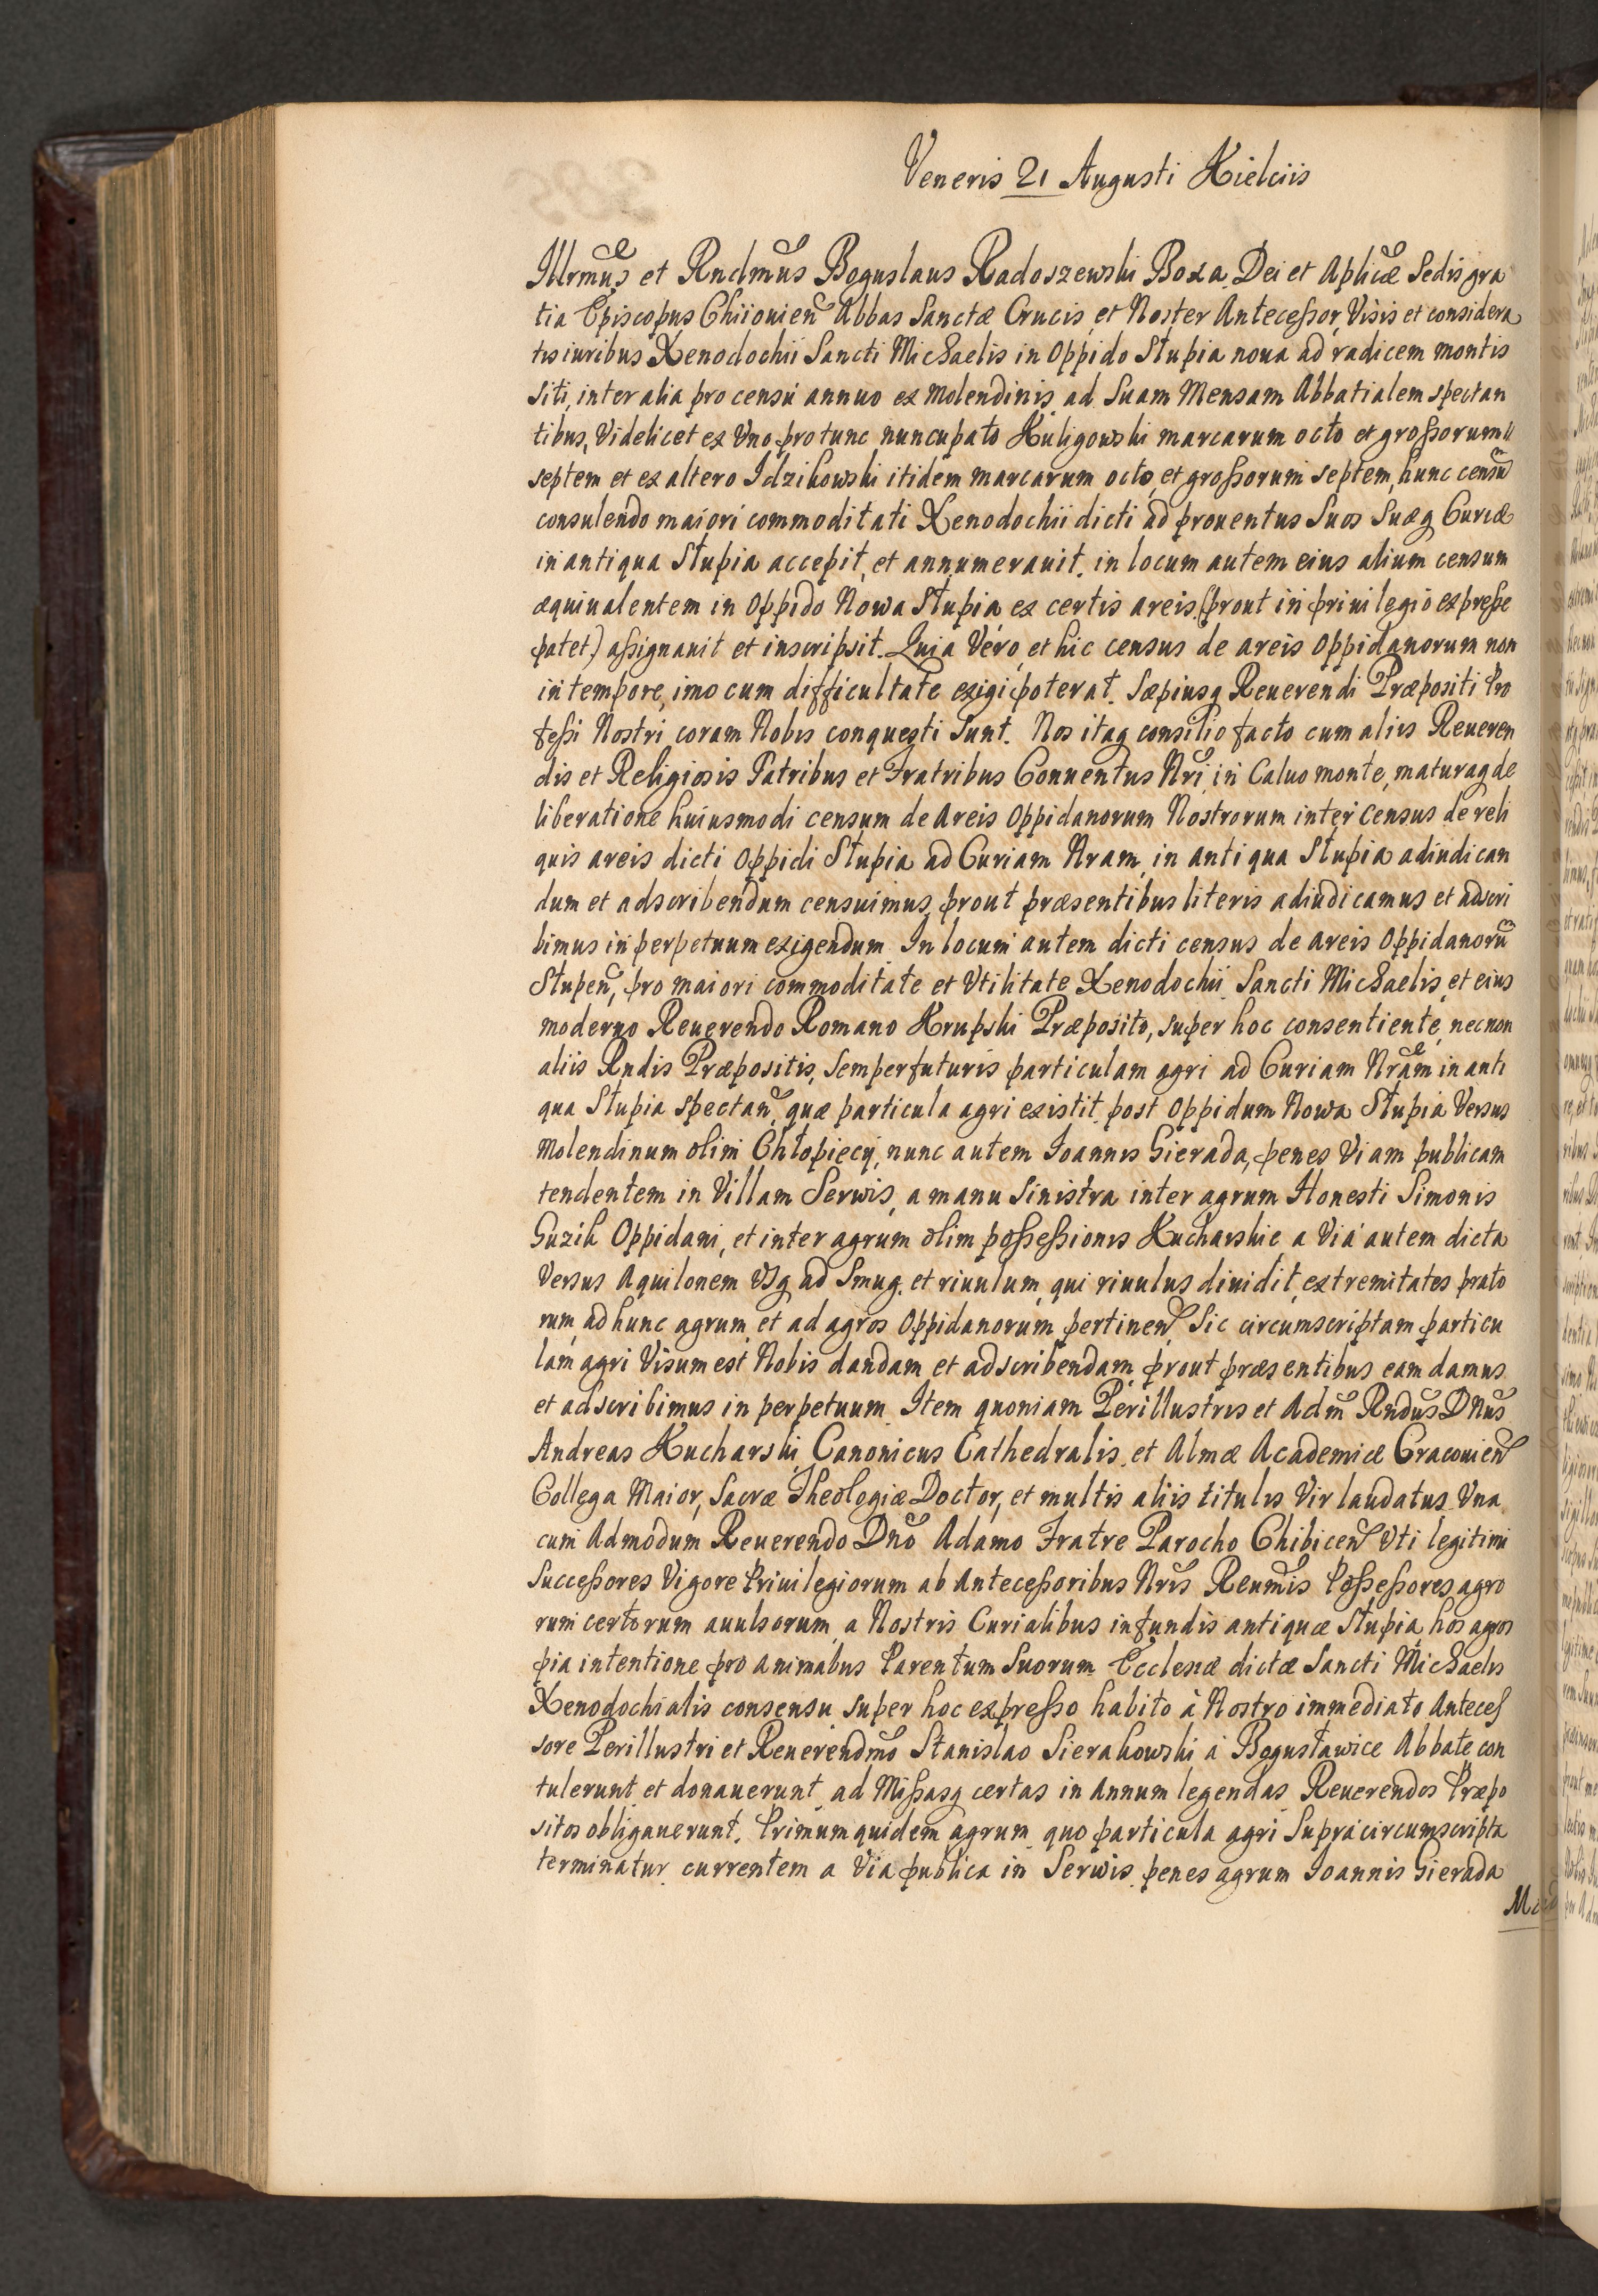 Veneris 21 Augusti Kielciis
Illrmus et Rndmus Boguslaus Radoszewski Boxa Dei et Aplicæ Sedis gra
tia Episcopus Chiiouien Abbas Sanctæ Crucis et Noster Antecessor, Visis et considera
tis iuribus Xenodochii Sancti Michaelis in Oppido Stupia noua ad radicem montis
siti, inter alia pro censu annuo ex Molendinis ad Suam Mensam Abbatialem spectan
tibus, Videlicet ex Vno pro tunc nuncupato Kuligowski marcarum octo et grossorum
septem et ex altero Idzikowski itidem marcarum octo, et grossorum septem, hunc censu
consulendo maiori commoditati Xenodochii dicti ad prouentus Suos Suæq Curiæ
in antiqua Stupia accepit, et annumerauit. in locum autem eius alium censum
æquiualentem in Oppido Nowa Stupia ex certis areis (prout in priuilegio expresse
patet) assignauit et inscripsit. Quia Vero et hic census de areis Oppidanorum non
in tempore, imo cum difficultate exigi poterat. Sæpiusq Reuerendi Præpositi Pro
fessi Nostri coram Nobis conquesti sunt. Nos itaq consilio facto cum aliis Reueren
dis et Religiosis Patribus et Fratribus Conuentus Nri in Caluo monte, maturaq de
liberatione huiusmodi censum de Areis Oppidanorum Nostrorum inter Census de reli
quis areis dicti Oppidi Stupia ad Curiam Nram in antiqua Stupia adiudican
dum et adscribendum censuimus, prout præsentibus literis adiudicamus et adscri
bimus in perpetuum exigendum. In locum autem dicti census de Areis Oppidanoru
Stupen, pro maiori commoditate et Vtilitate Xenodochii Sancti Michaelis, et eius
moderno Reuerendo Romano Krupski Præposito, super hoc consentiente, necnon
aliis Rndis Præpositis, semper futuris particulam agri ad Curiam Nram in anti
qua Stupia spectan, quæ particula agri existit post Oppidum Nowa Stupia Versus
Molendinum olim Chłopięcy, nunc autem Joannis Gierada, penes Viam publicam
tendentem in Villam Serwis, a manu sinistra inter agrum Honesti Simonis
Guzik Oppidani, et inter agrum olim possessionis Kucharskie, a Via autem dicta
Versus Aquilonem Vsq ad Smug. et riuulum, qui riuulus diuidit extremitates prato
rum, ad hunc agrum et ad agros Oppidanorum pertinen Sic circumscriptam particu
lam agri Visum est Nobis dandam et adscribendam, prout præsentibus eam damus
et adscribimus in perpetuum. Item quoniam Perillustris et Adm Rndus Dnus
Andreas Kucharski Canonicus Cathedralis, et Almæ Academiæ Cracouien
Collega Maior, Sacræ Theologiæ Doctor, et multis aliis titulis Vir laudatus Vna
cum Admodum Reuerendo Dno Adamo Fratre Parocho Chibicen Vti legitimi
Successores Vigore Priuilegiorum ab Antecessoribus Nris Reumis Possessores agro
rum certorum auulsorum a Nostris Curialibus in fundis antiquæ Stupia hos agros
pia intentione pro animabus Parentum Suorum Ecclesiæ dictæ Sancti Michaelis
Xenodochialis consensu super hoc expresso habito à Nostro immediato Anteces
sore Perillustri et Reuerendmo Stanislao Sierakowski à Bogusławice Abbate con
tulerunt et donauerunt ad Missasq certas in Annum legendas Reuerendos Præpo
sitos obligauerunt. Primum quidem agrum quo particula agri supra circumscripta
terminatur currentem a Via publica in Serwis penes agrum Joannis Gierada